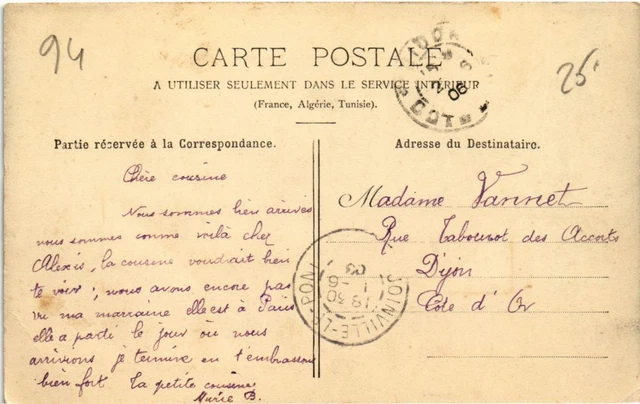 94
25
CARTE POSTALE
A UTILISER SEULEMENT DANS LE SERVICE INTÉRIEUR
(France, Algérie, Tunisie).
Partie réservée à la Correspondance.
Chère cousine
Nous sommes bien arrivés
nous sommes comme voilà chez
Alexis, la cousine voudrait bien
te voir ; nous avons encore pas
vu ma marraine elle est à Paris
elle a parti le jour ou nous
arrivions je termine en t'embrassant
bien fort ta petite cousine
Marie B.
Adresse du Destinataire.
Madame Vannet
Rue Tabourot des Accords
Dijon
Côte d'Or
JOINVILLE-LE-PONT
1 -6
18 30
DIJON
06